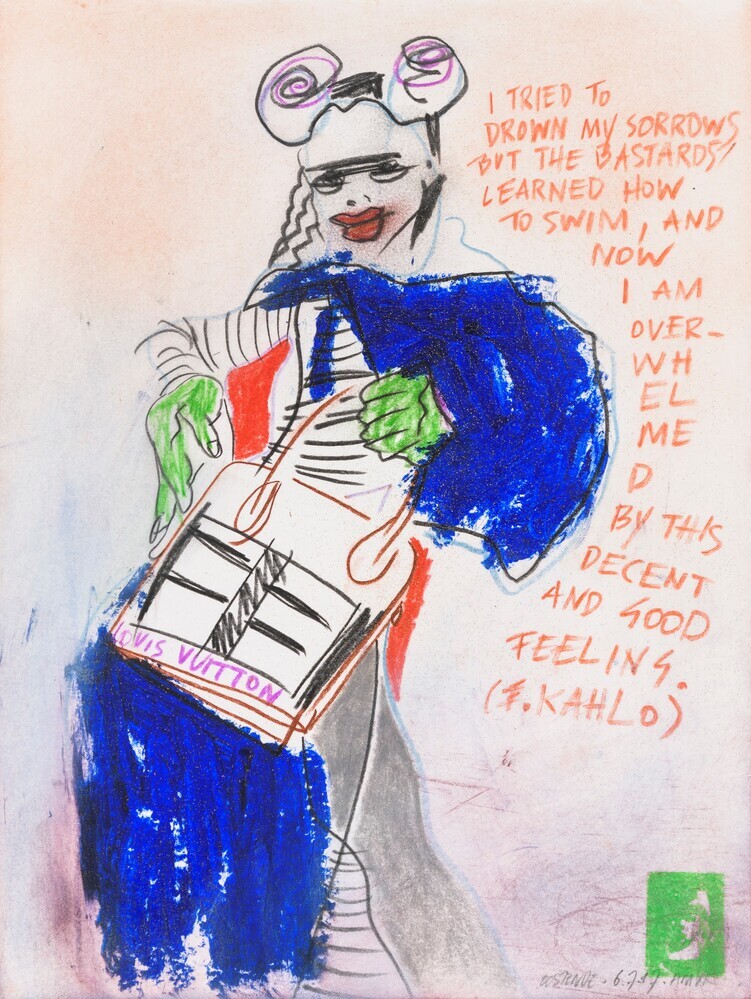 I TRIED TO
DROWN MY SORROWS
BUT THE BASTARDS
LEARNED HOW
TO SWIM, AND
NOW
I AM
OVER-
WH
EL
ME
D
BY THIS
DECENT
AND GOOD
FEELING.
(F. KAHLO)
LOUIS VUITTON
OOSTENDE . 6.7.17.